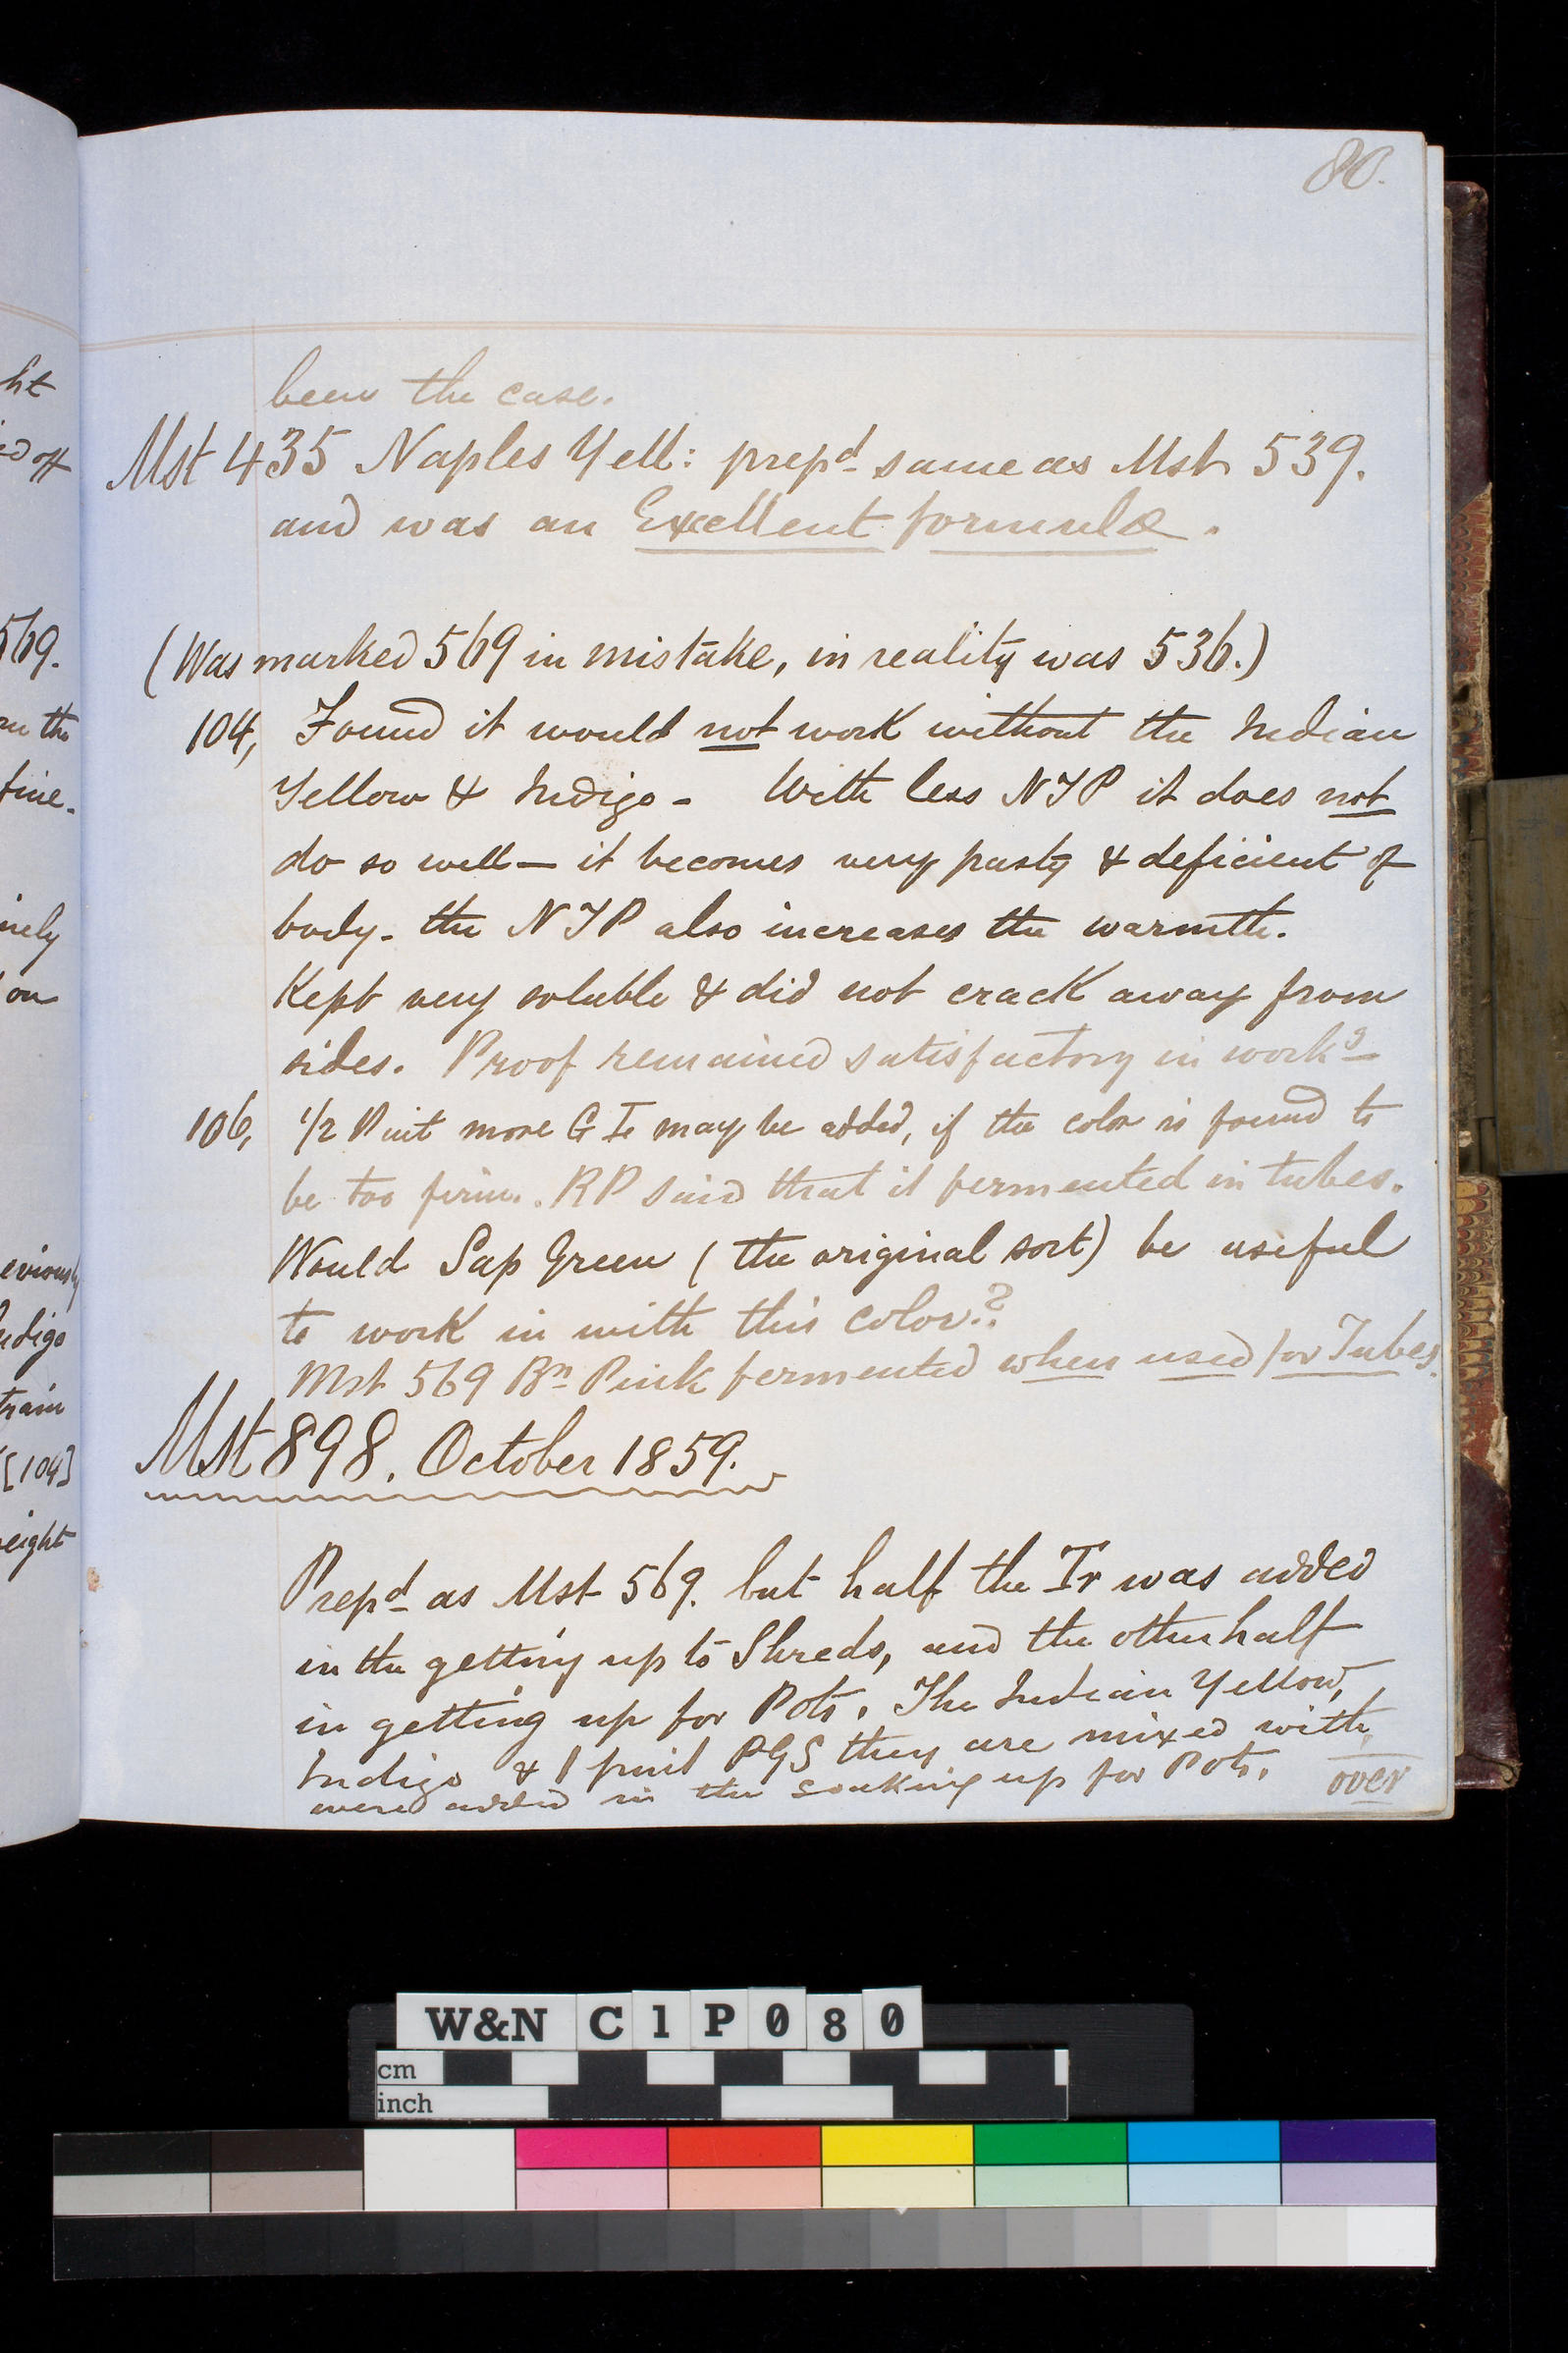 80.
ht
ed off
569.
on the
fine.
inely
on
eviously
Indigo
train
[104]
eight
been the case.
Mst 435 Naples Yell: prepd same as Mst 539.
and was an Excellent formula.
(Was marked 569 in mistake, in reality was 536.)
104, Found it would not work without the Indian
Yellow & Indigo - With less NTP it does not
do so well — it becomes very pasty & deficient of
body. the NTP also increases the warmth.
Kept very soluble & did not crack away from
sides. Proof remained satisfactory in workg
106, 1/2 Pint more G Tr may be added, if the color is found to
be too firm. RP said that it fermented in tubes.
Would Sap Green (the original sort) be useful
to work in with this color?
Mst 569 Bn Pink fermented when used for Tubes.
Mst 898. October 1859.
Prepd as Mst 569. but half the Tr was added
in the getting up to Shreds, and the other half
in getting up for Pots. The Indian Yellow,
Indigo & 1 pint PGS they are mixed with,
were added in the soaking up for Pots.
over
W&N C1P080
cm
inch